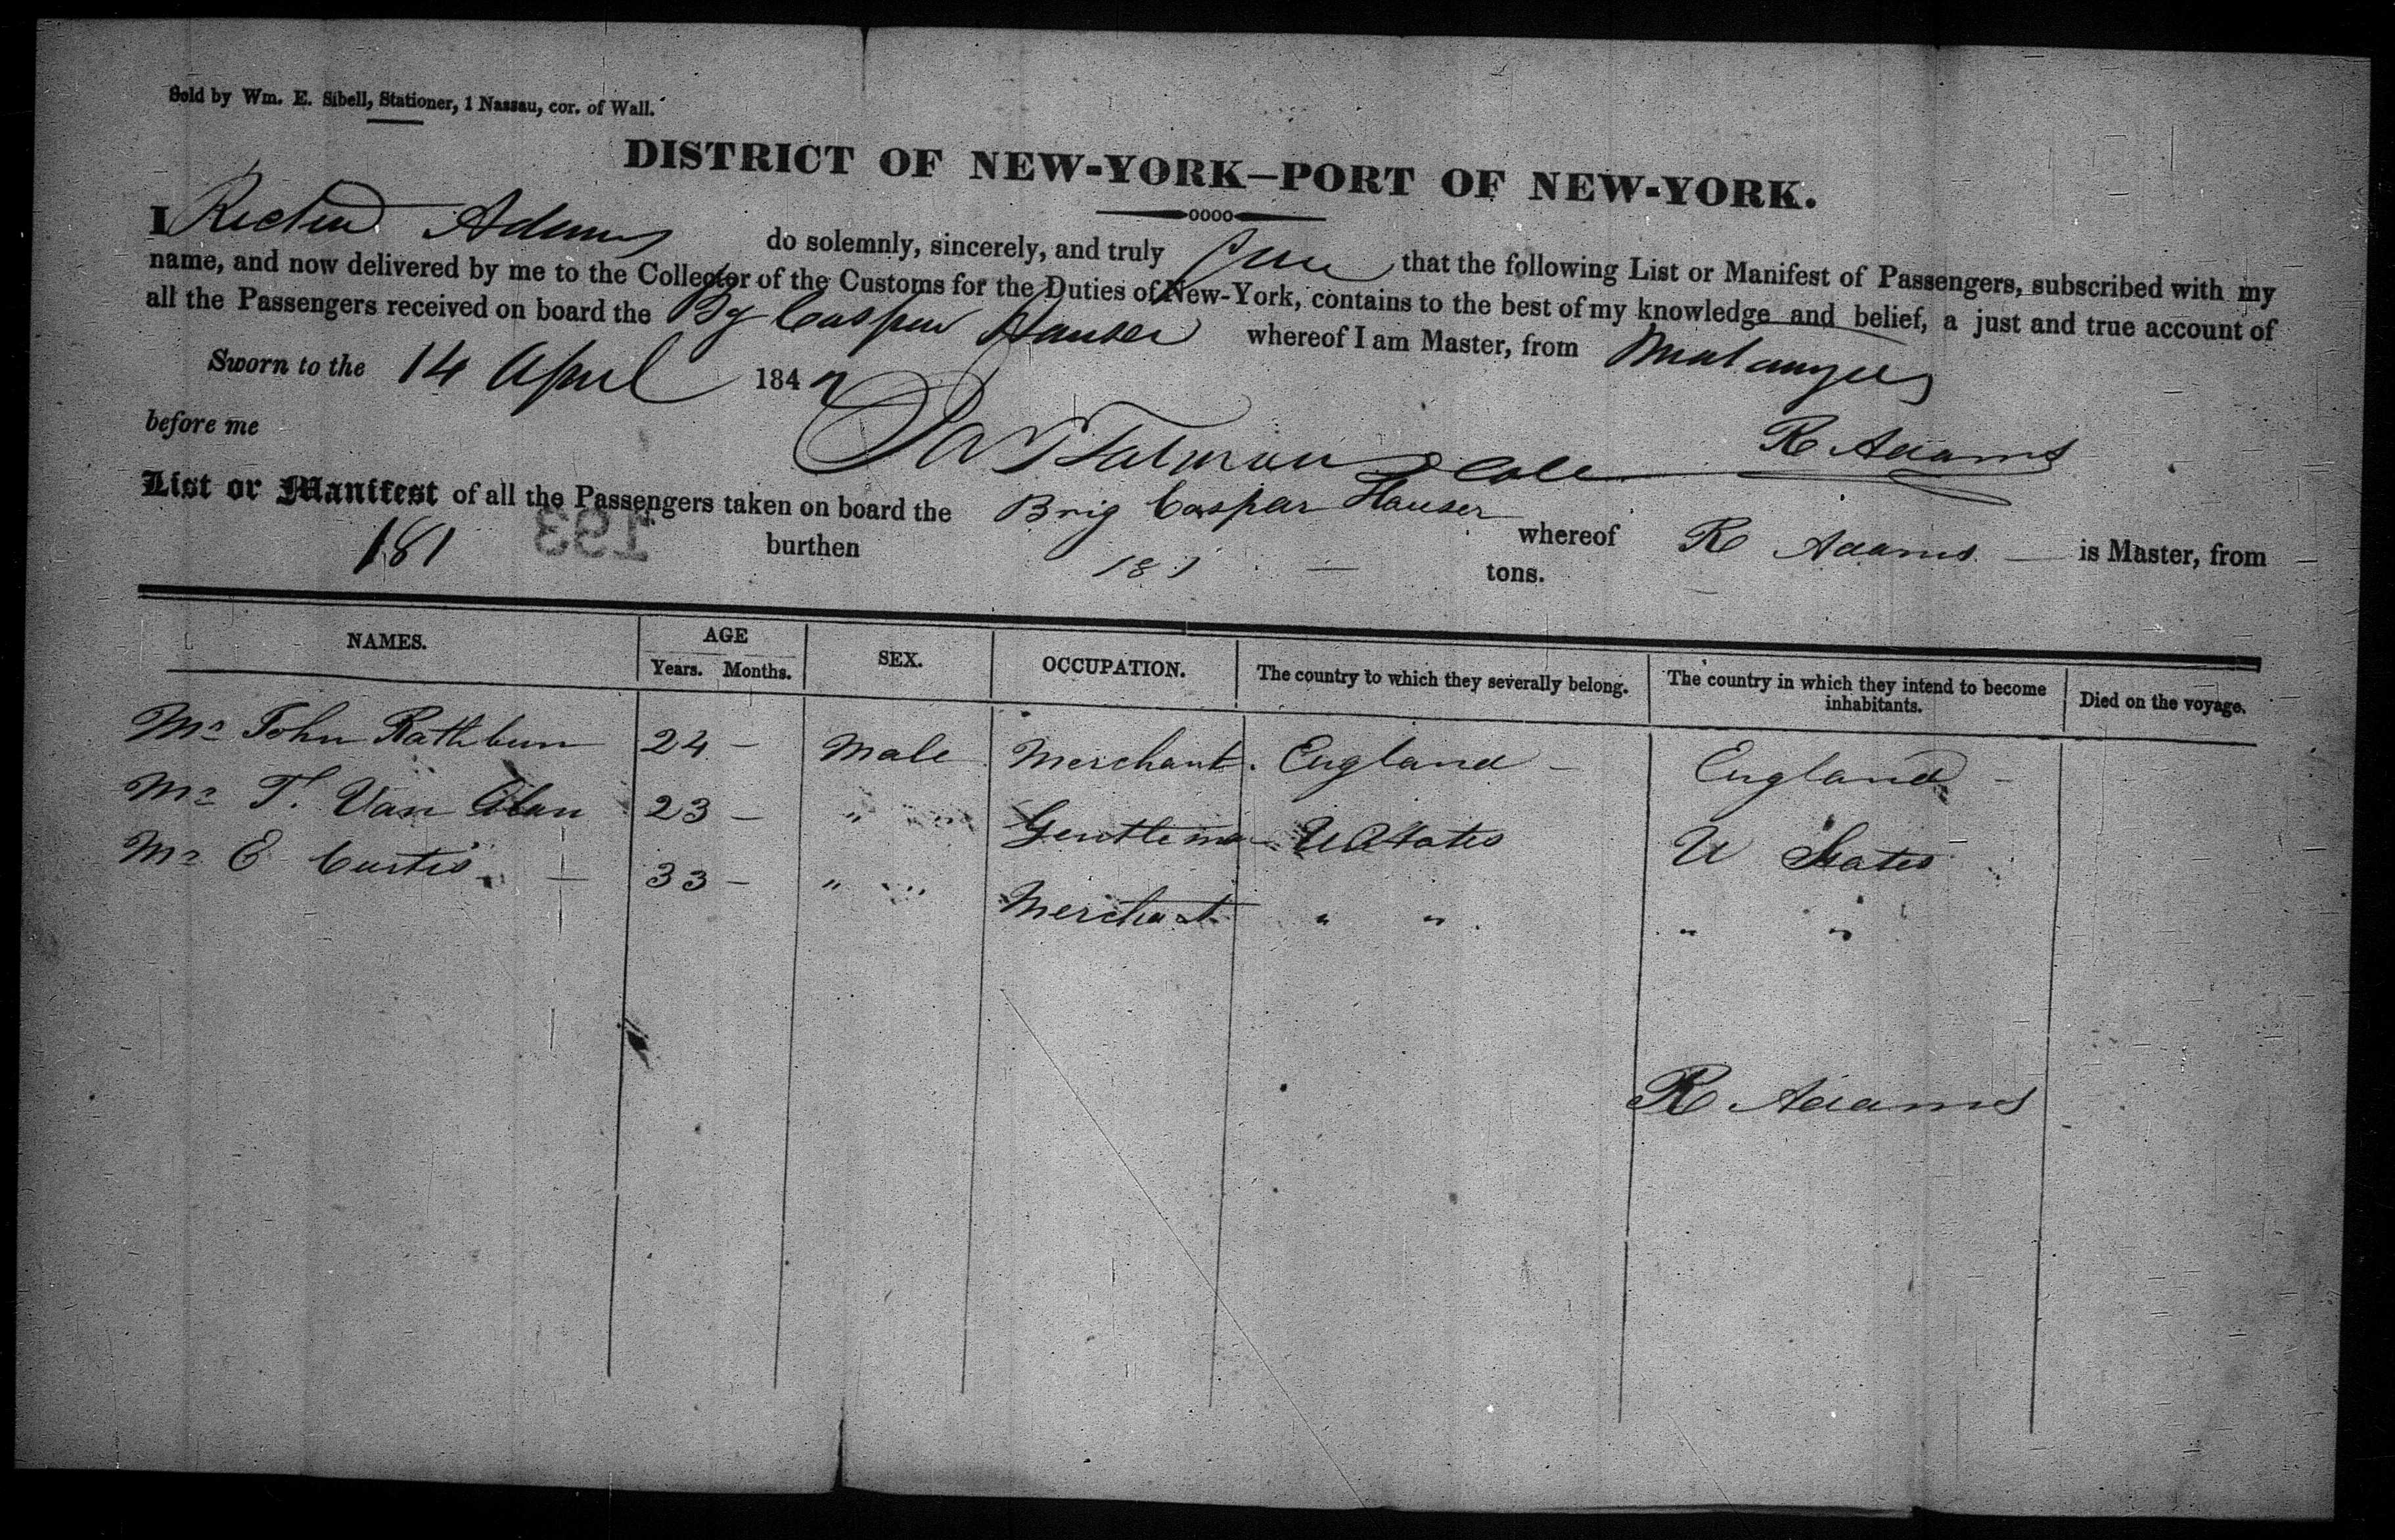 Sold by Wm. E. Sibell, Stationer, 1 Nassau, cor. of Wall.
DISTRICT OF NEW-YORK—PORT OF NEW-YORK.
I Adams do solemnly, sincerely, and truly that the following List or Manifest of Passengers, subscribed with my
name, and now delivered by me to the Collector of the Customs for the Duties of New-York, contains to the best of my knowledge and belief, a just and true account of
all the Passengers received on board the Bg Caspar Hauser whereof I am Master, from Matanzas
Sworn to the 14 April 184
before me R Adams
List or Manifest of all the Passengers taken on board the Brig Caspar Hauser whereof R Adams is Master, from
181 193 burthen 181 tons.
NAMES. AGE SEX. OCCUPATION. The country to which they severally belong. The country in which they intend to become inhabitants. Died on the voyage.
Years. Months.
Mr John Rathbun 24 – Male Merchant. England – England –
Mr T. Van Alan 23 – " Gentleman U States U States
Mr E Curtis 33 – " Merchant " " " "
R Adams